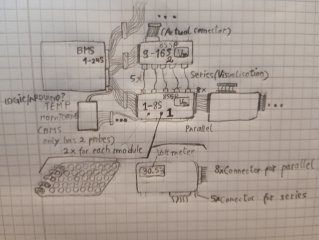 (Actual connector)
BMS
1-24S
9-16S
2
5x
Series (Visualisation)
8x
1-8S
1
Parallel
TEMP
(BMS
only has 2 probes)
2x for each module
Voltmeter
30.5V
8x Connector for parallel
5x Connector for series